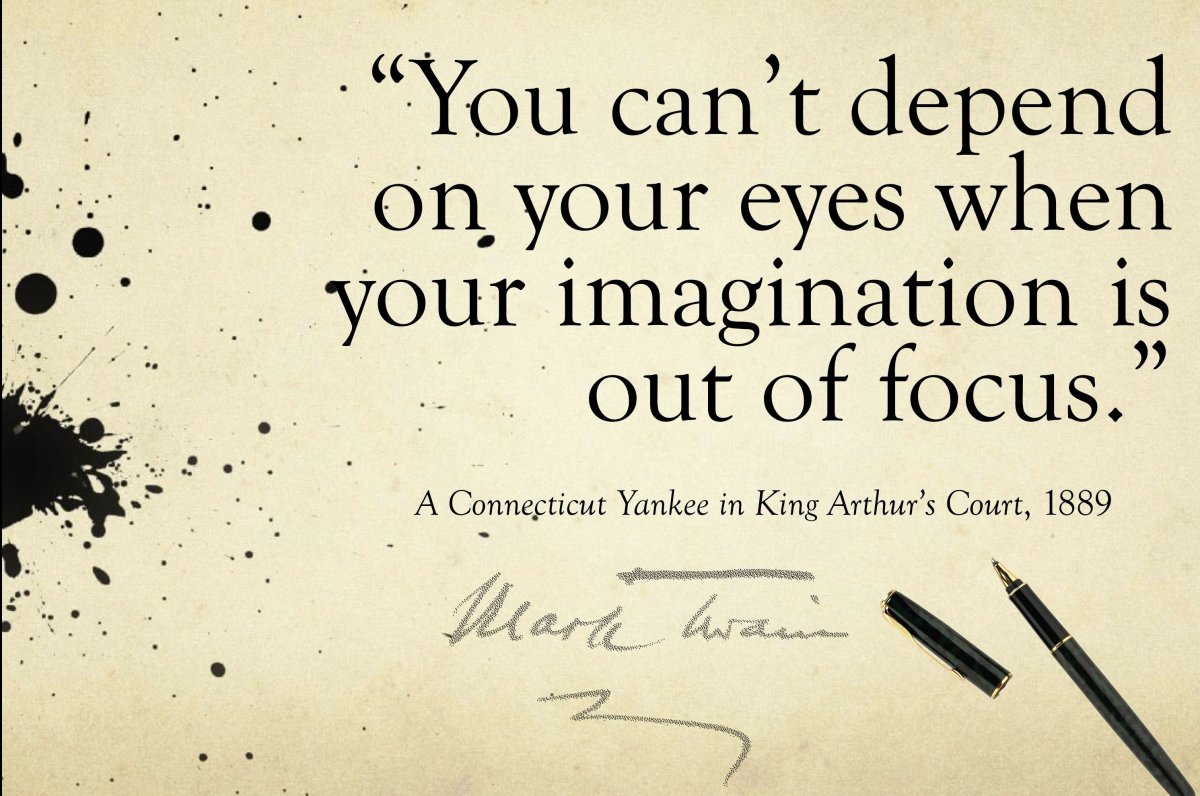 “You can’t depend
on your eyes when
your imagination is
out of focus.”
A Connecticut Yankee in King Arthur’s Court, 1889
Mark Twain